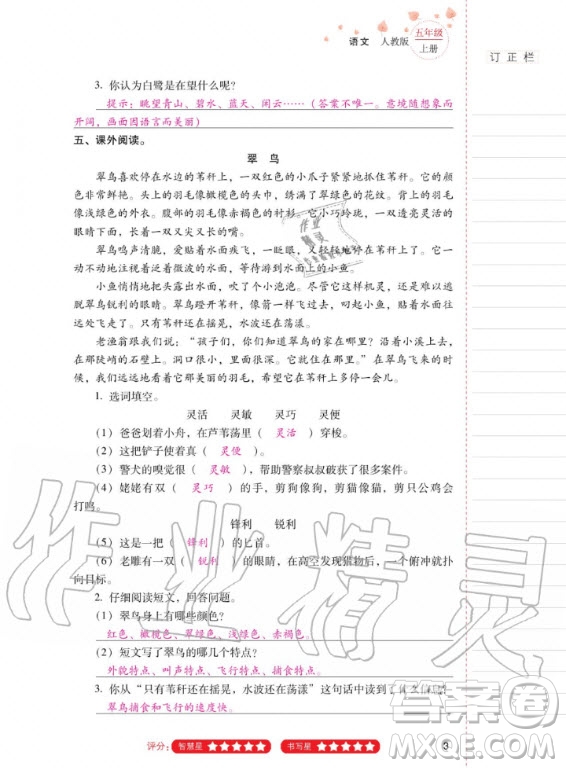 语文 人教版 五年级上册
订正栏
3. 你认为白鹭是在望什么呢?
提示:眺望青山、碧水、蓝天、闲云……(答案不唯一。意境随想象而
开阔,画面因语言而美丽)
五、课外阅读。
翠 鸟
翠鸟喜欢停在水边的苇秆上,一双红色的小爪子紧紧地抓住苇秆。它的颜
色非常鲜艳。头上的羽毛像橄榄色的头巾,绣满了翠绿色的花纹。背上的羽毛
像浅绿色的外衣。腹部的羽毛像赤褐色的衬衫。它小巧玲珑,一双透亮灵活的
眼睛下面,长着一双又尖又长的嘴。
翠鸟鸣声清脆,爱贴着水面疾飞,一眨眼,又轻轻地停在苇秆上了。它一
动不动地注视着泛着微波的水面,等待游到水面上来的小鱼。
小鱼悄悄地把头露出水面,吹了个小泡泡。尽管它这样机灵,还是难以逃
脱翠鸟锐利的眼睛。翠鸟蹬开苇秆,像箭一样飞过去,叼起小鱼,贴着水面往
远处飞走了。只有苇秆还在摇晃,水波还在荡漾。
老渔翁跟我们说:“孩子们,你们知道翠鸟的家在哪里?沿着小溪上去,
在那陡峭的石壁上。洞口很小,里面很深。逮它可不容易呀!”在翠鸟飞来的时
候,我们远远地看着它那美丽的羽毛,希望它在苇秆上多停一会儿。
1. 选词填空。
灵活 灵敏 灵巧 灵便
(1)爸爸划着小舟,在芦苇荡里( 灵活 )穿梭。
(2)这把铲子使着真( 灵便 )。
(3)警犬的嗅觉很( 灵敏 ),帮助警察叔叔破获了很多案件。
(4)姥姥有双( 灵巧 )的手,剪狗像狗,剪猫像猫,剪只公鸡会
打鸣。
锋利 锐利
(5)这是一把( 锋利 )的匕首。
(6)老雕有一双( 锐利 )的眼睛,在高空发现猎物后,一个俯冲就扑
向目标。
2. 仔细阅读短文,回答问题。
(1)翠鸟身上有哪些颜色?
红色、橄榄色、翠绿色、浅绿色、赤褐色。
(2)短文写了翠鸟的哪几个特点?
外貌特点、叫声特点、飞行特点、捕食特点。
3. 你从“只有苇秆还在摇晃,水波还在荡漾”这句话中读到了
翠鸟捕食和飞行的速度快。
评分: 智慧星 ★★★★★ 书写星 ★★★★★
3
作业精灵
答案圈